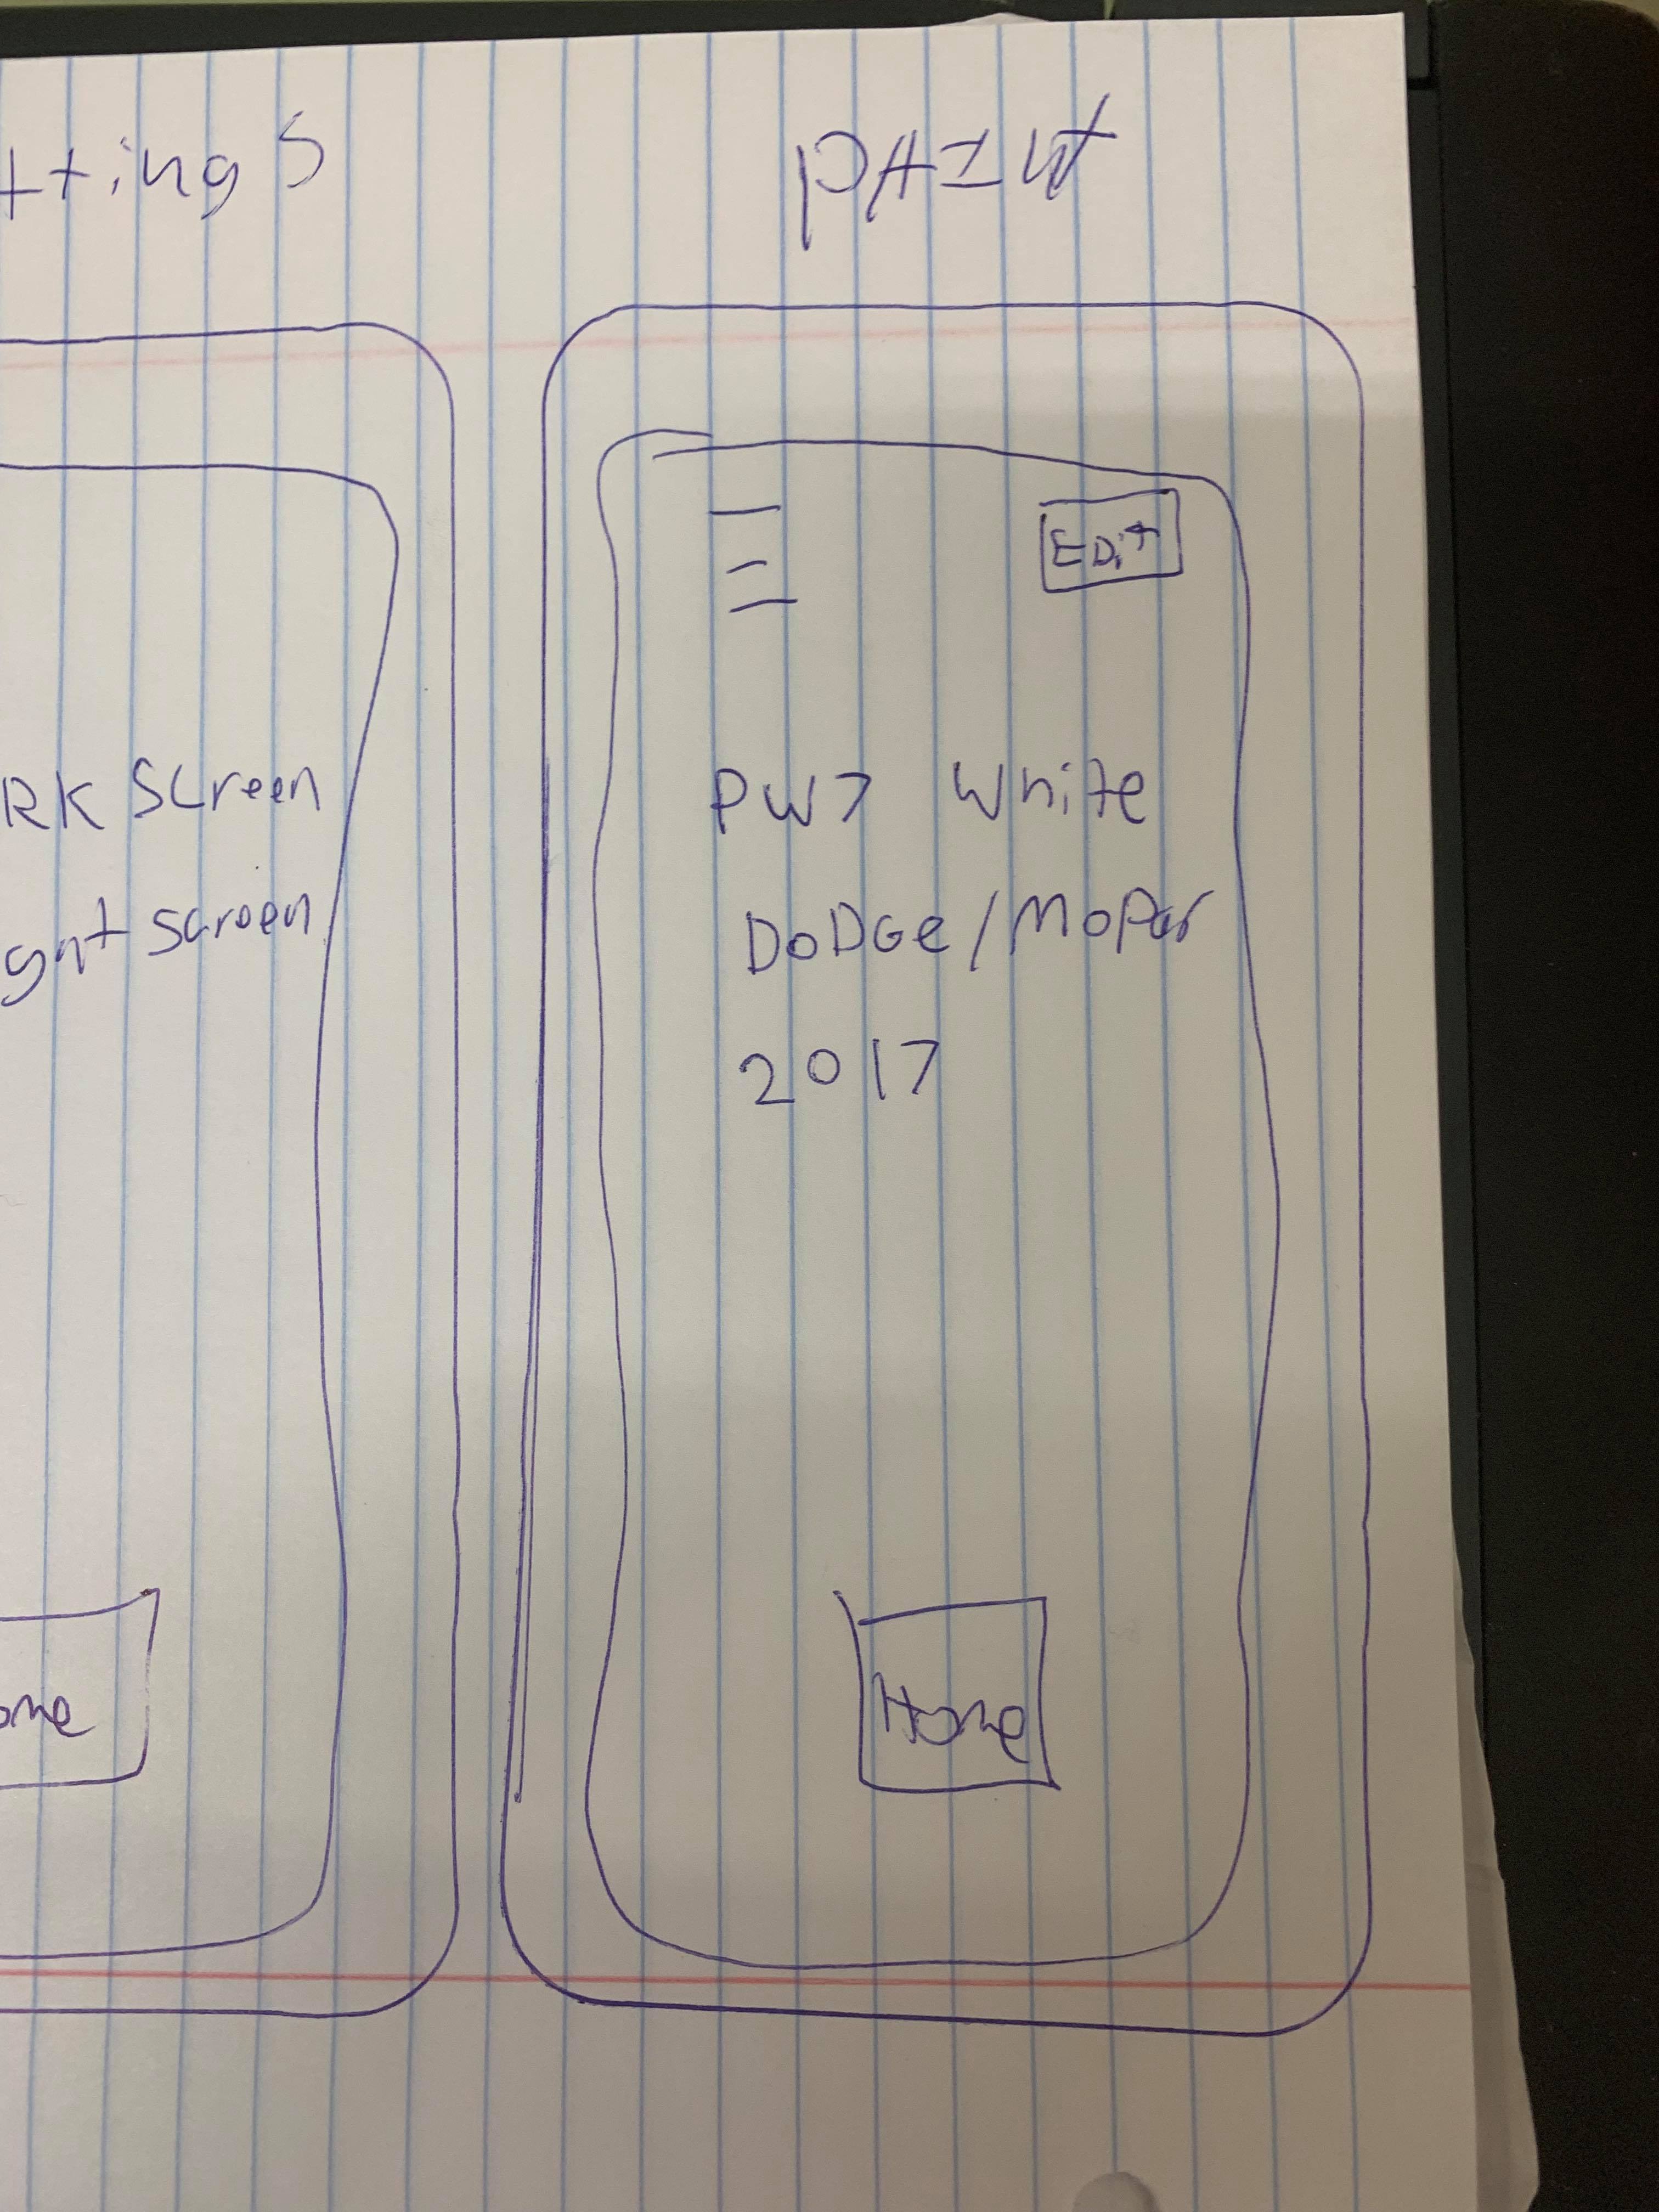 ttings
RK Screen
ght screen
ome
PAINt
EDit
PW7 White
DODGe/Mopar
2017
Home